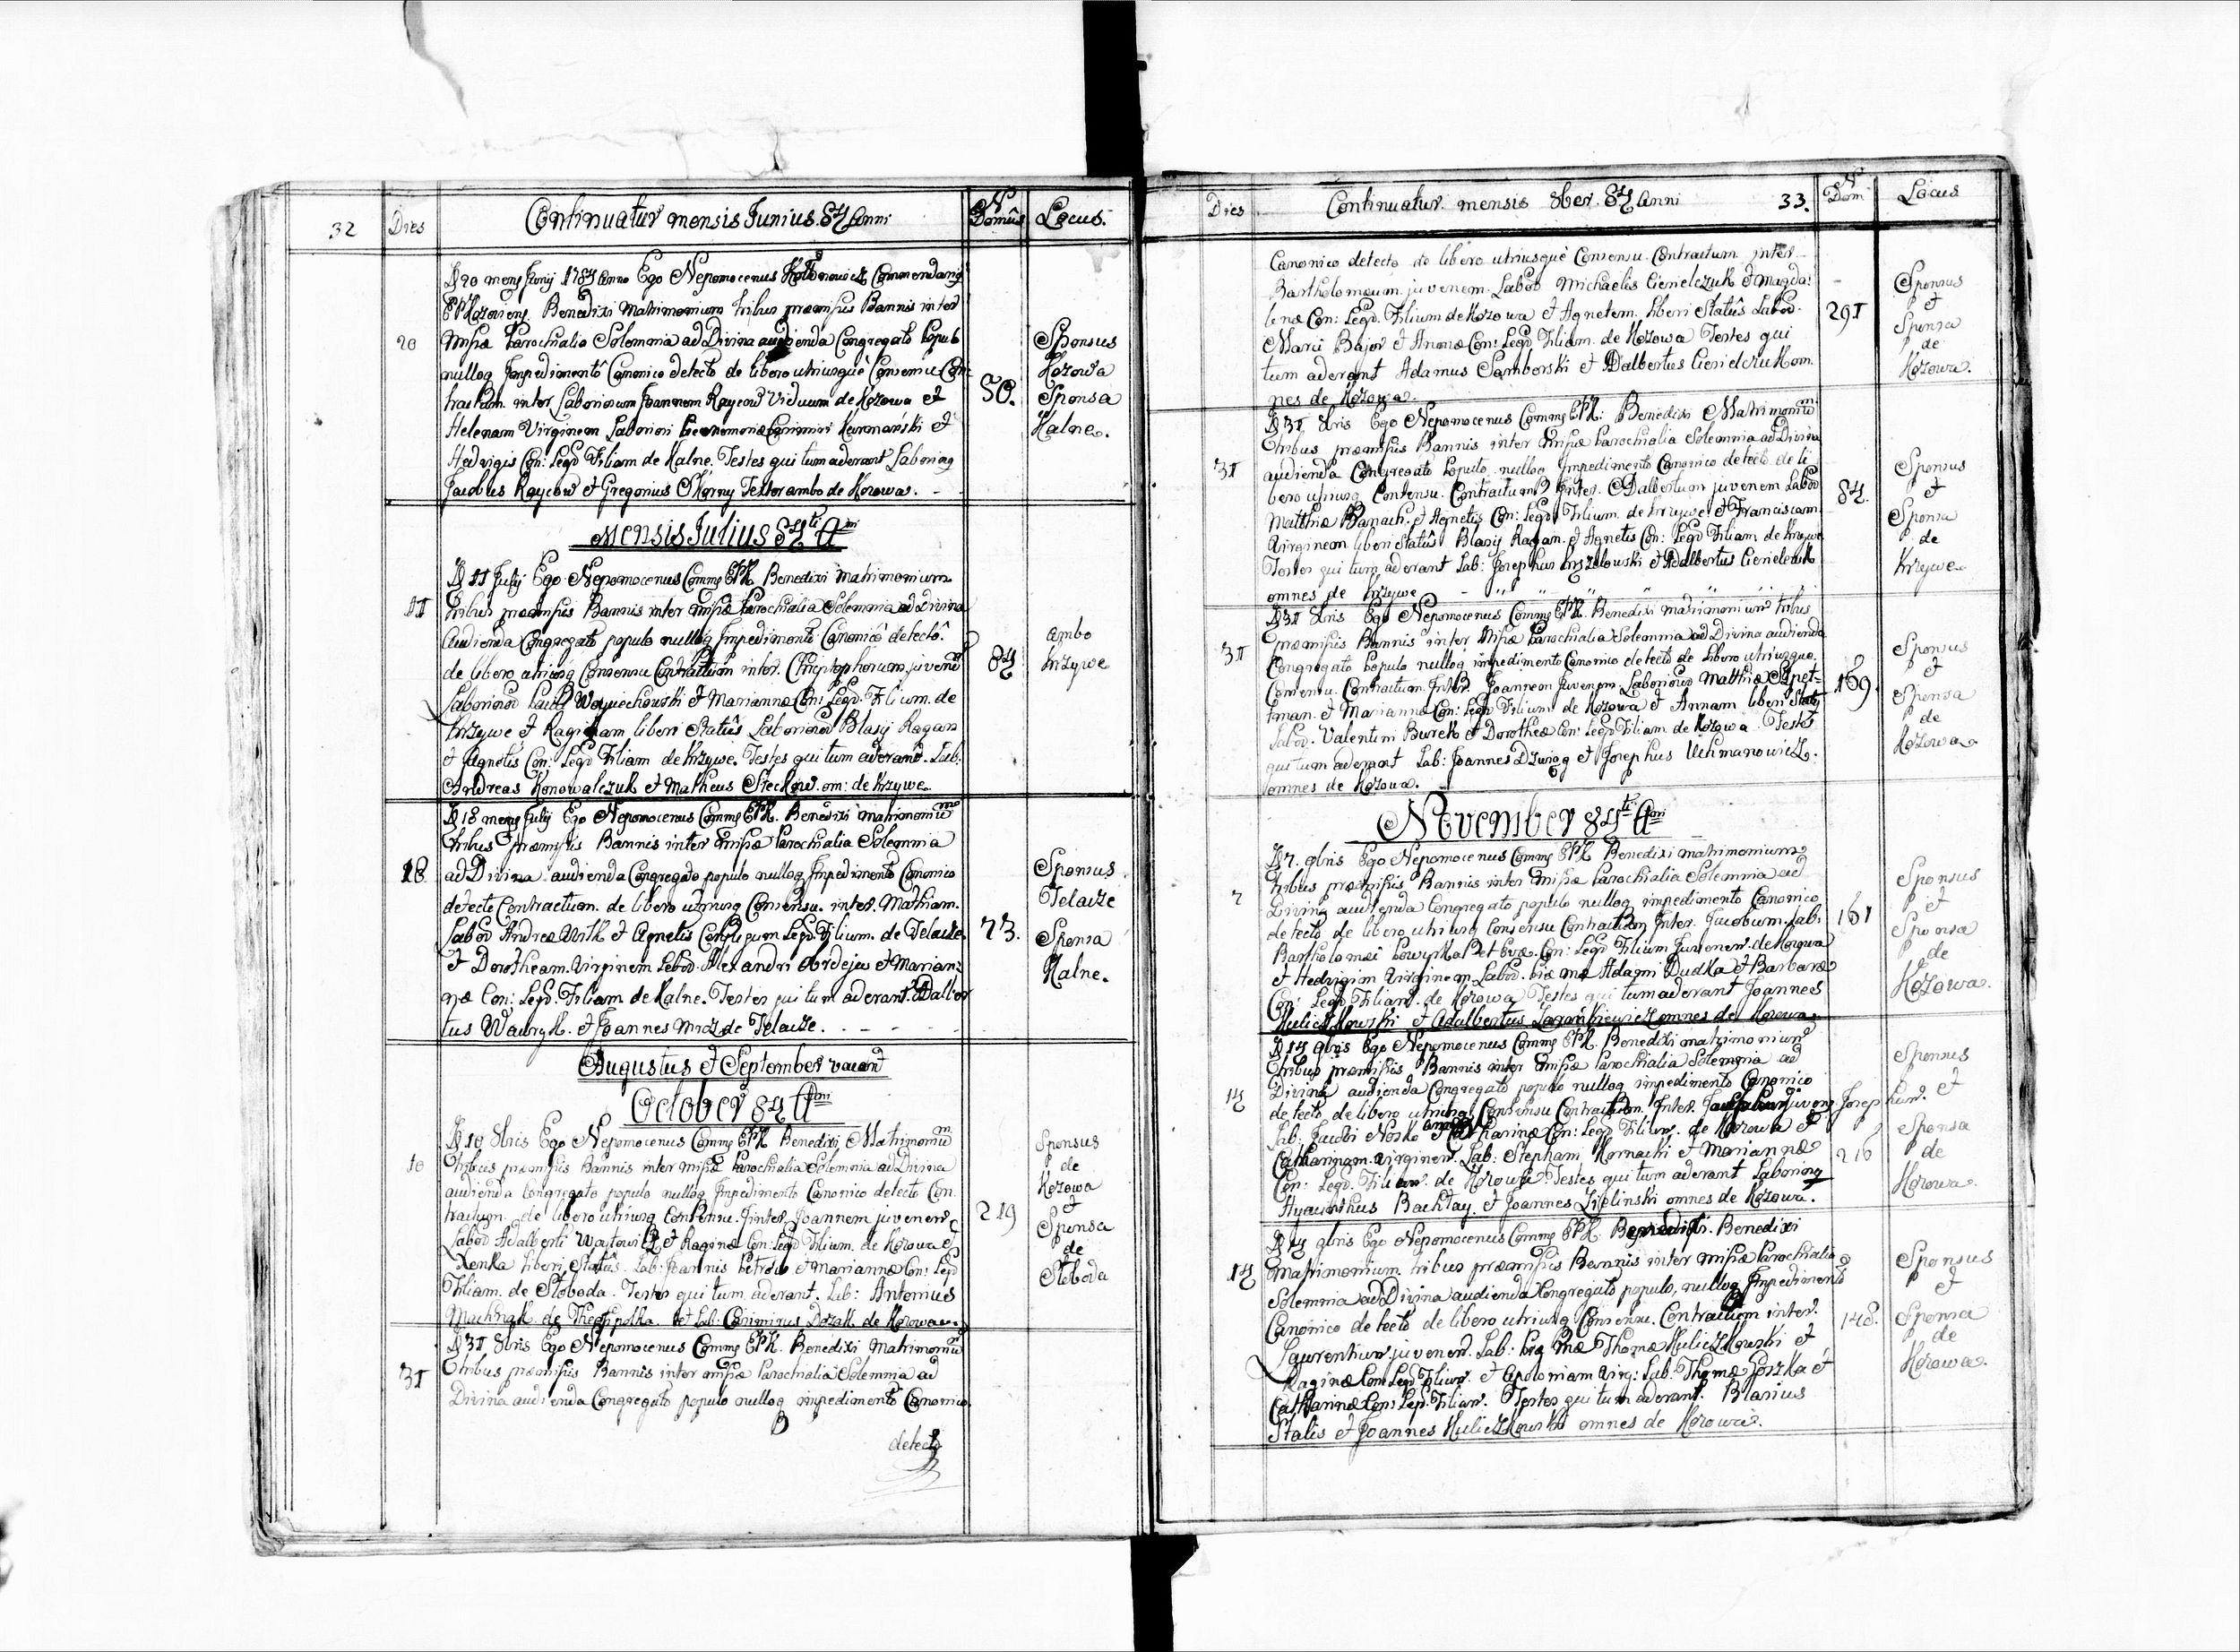 32
Dies
Continuatur mensis Junius 84 Anni
N Domûs
Locus.
D 20 mens Junij 1784 Anno Ego Nepomocenus Commendang
EPKozoviens. Benedixi Matrimonium tribus præmissis Bannis inter
20
Missæ Parochialia Solemnia ad Divina audienda Congregato Popul
nulloq Impedimentô Canonico detecto de libero utriusquè Consensu Con-
tractum inter Laboriosum Joannem Raycow Viduum de Kozowa et
Helenam Virginem Laboriosi Casimiri Kurmański et
Hedvigis Con: Legd Filiam de Kalne. Testes qui tum aderant Laboriog
Jacobus Raycow et Gregorius Skorny Textor ambo de Kozowa.
50.
Sponsus
Kozowa
Sponsa
Kalne.
Mensis Julius 84ti Ani
D 11 Julij Ego Nepomocenus Comms EPK Benedixi Matrimonium
11
tribus præmissis Bannis inter Missæ Parochialia Solemnia ad Divina
Audienda Congregato populo nulloq Impedimentô Canonicô detectô.
de libero utriusq Consensu Contractum inter. Christophorum juvenem
Laboriosod Pauli Woyciechowski et Mariannæ Con: Legd. Filium. de
Krzywe et Raginam liberi Statûs Laboriosod Blasij Ragan
et Agnetis Con: Legd Filiam de Krzywe. Testes qui tum aderant. Lab.
Andreas Konowalczuk et Matheus Steckow. om: de Krzywe.
84
ambo
Krzywe
D 18 mens Julij Ego Nepomocenus Comms EPK. Benedixi matrimoniũm
tribus præmissis Bannis inter Missæ Parochialia Solemnia
18
ad Divina audienda Congregato populo nulloq Impedimentô Canonico
detecto Contractum. de libero utriusq Consensu. inter. Mathiam.
Labod Andreæ Wilk et Agnetis Conjugum Legd Filium. de Telacze
et Dorotheam. Virginem Labod. Alexandri Ardeja et Marian:
næ Con: Legd. Filiam de Kalne. Testes qui tum aderant. Adalber
tus Wawryk. et Joannes Mroz de Telacze.
73.
Sponsus
Telacze
Sponsa
Kalne.
Augustus et September vacant
October 84 Ani
D 10 8bris Ego Nepomocenus Comms EPK Benedixi Matrimoniũm
10
tribus præmissis Bannis inter Missæ Parochialia Solemnia ad Divina
audienda Congregato populo nulloq Impedimento Canonico detecto Con.
tractum. de libero utriusq Consensu. Jinter. Joannem juvenem
Labod Adalberti Woytowicz et Raginæ Con: Legd Filium. de Kozowa et
Xenka liberi Statûs. Lab: Joannis Petrow et Mariannæ Con: Legd
Filiam. de Sloboda. Testes qui tum aderant. Lab: Antonius
Machnak de Theofipolka. et Lab: Casimirus Dozak. de Kozowa
219
Sponsus
de
Kozowa
et
Sponsa
de
Sloboda
D 31 8bris Ego Nepomocenus Comms EPK. Benedixi Matrimoniũm
31
tribus præmissis Bannis inter Missæ Parochialia Solemnia ad
Divina audienda Congregato populo nulloq impedimentô Canonico
detecto
Dies
Continuatur. mensis 8ber. 84 Anni
33.
N Dom
Locus
Canonico detecto de libero utriusquè Consensu Contractum inter
Bartholomæum juvenem. Labod Michaelis Cienielczuk et Magda:
lenæ Con: Legd. Filium de Kozowa et Agnetem. liberi Statûs Labod.
Marci Bajor et Annæ Con: Legd Filiam. de Kozowa Testes qui
tum aderant Adamus Samborski et Adalbertus Cienielczuk om.
nes de Kozowa.
291
Sponsus
et
Sponsa
de
Kozowa.
D 31 8bris Ego Nepomocenus Comms EPK: Benedixi Matrimoniũm
tribus præmissis Bannis inter Missæ Parochialia Solemnia ad Divina
31
audienda Congregato Populo nulloq Impedimento Canonico detecto de li
bero utriusq Consensu. Contractum Inter. Adalbertum juvenem Labod
Matthiæ Banach. et Agnetis Con: Legd Filium. de Krzywe et Franciscam.
Virginem liberi Statûs Blasij Ragan. et Agnetis Con: Legd Filiam. de Krzywe
Testes qui tum aderant Lab: Josephus et Adalbertus Cienielczuk
omnes de Krzywe
84.
Sponsus
et
Sponsa
de
Krzywe
D 31 8bris Ego Nepomocenus Comms EPK. Benedixi matrimonium tribus
31
præmissis Bannis inter Missæ Parochialia Solemnia ad Divina audienda
Congregato Populo nulloq impedimento Canonico detecto de Libero utriusque.
Consensu. Contractum. Inter. Joannem Juvenem. Laboriosod Matthiæ
tman. et Mariannæ Con: Legd Filium de Kozowa et Annam liberi Statq
Labod. Valentini Burek et Dorotheæ Con: Legd Filiam de Kozowa. Testes
qui tum aderant Lab: Joannes et Josephus Uchmanowicz.
omnes de Kozowa.
169.
Sponsus
et
Sponsa
de
Kozowa.
November 84ti Ani
D 7. 9bris Ego Nepomocenus Comms EPK Benedixi matrimonium
tribus præmissis Bannis inter Missæ Parochialia Solemnia ad
7
Divina audienda Congregato populo nulloq impedimento Canonico
detecto de libero utriusq Consensu Contractum Inter. Jacobum. Lab:
Bartholomæi et Evæ. Con: Legd Filium Juvenem. de Kozowa
et Hedvigim Virginem. Labod. piæ mæ Adami Dudka et Barbaræ
Con: Legd Filiam. de Kozowa Testes qui tum aderant Joannes
Kuliczkowski et Adalbertus omnes de Kozowa.
161
Sponsus
et
Sponsa
de
Kozowa.
D 14 9bris Ego Nepomocenus Comms EPK. Benedixi matrimonium
tribus præmissis Bannis inter Missæ Parochialia Solemnia ad
14
Divina audienda Congregato populo nulloq impedimento Canonico
detecto, de libero utriusq Consensu Contractum. Inter. juveng. Josephum.
Lab: Jacobi Nosko et Catharinæ Con: Legd Filium. de Kozowa et
Catharinam. Virginem. Lab: Stephani Kornacki et Mariannæ
Con: Legd. Filiam. de Kozowa Testes qui tum aderant Laboriosq
Hyacinthus Bachtay. et Joannes Zielinski omnes de Kozowa.
216
Sponsus
et
Sponsa
de
Kozowa.
D 14 9bris Ego Nepomocenus Comms EPK Benedixi
14
Matrimonium tribus præmissis Bannis inter Missæ Parochialia
Solemnia ad Divina audienda Congregato populo, nulloq Impedimento
Canonico detecto de libero utriusq Consensu. Contractum inter.
Laurentium juvenem. Lab: piæ mæ Thomæ Kuliczkowski et
Raginæ Con: Legd Filium. et Apoloniam Virg: Lab. Thomæ Goszka et
Catharinæ Con: Legd. Filiam. Testes qui tum aderant. Blasius
Stalis et Joannes Kuliczkowski omnes de Kozowa.
148.
Sponsus
et
Sponsa
de
Kozowa.